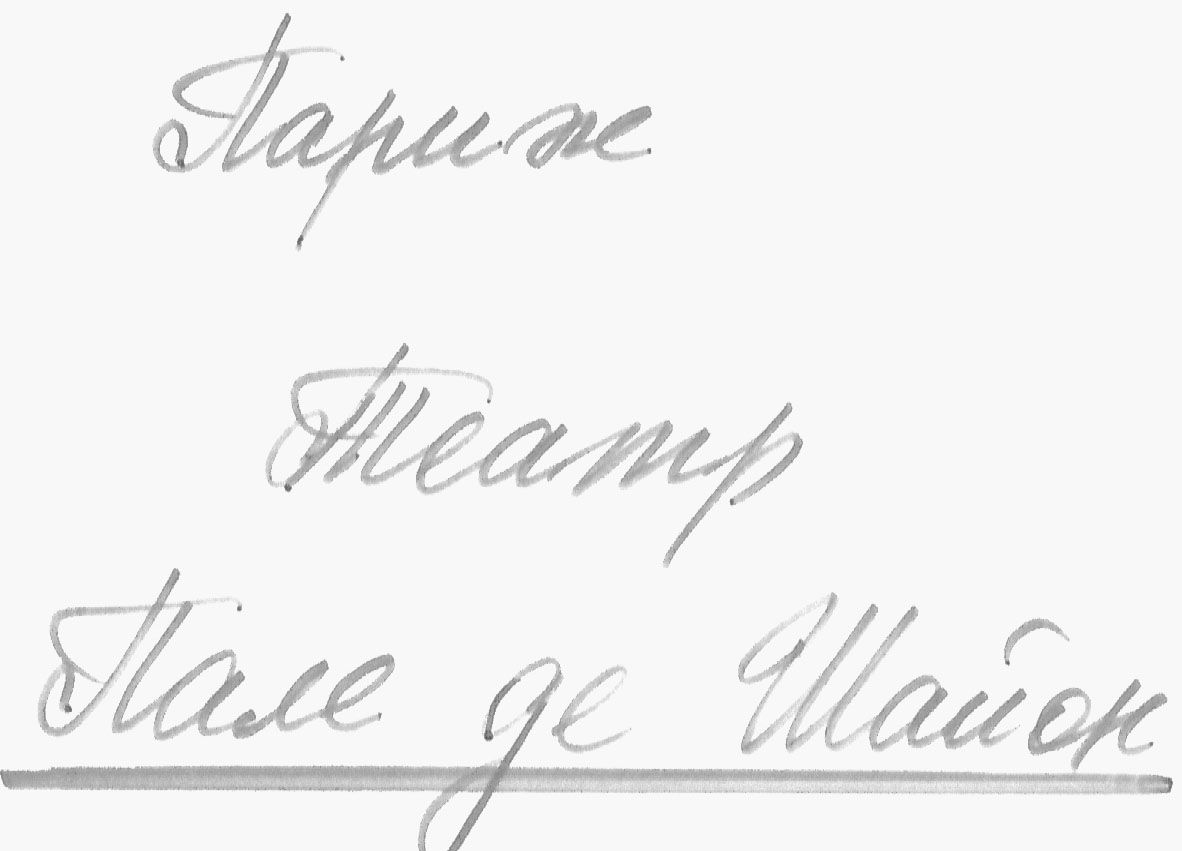 Париж
Театр
Пале де Шайон